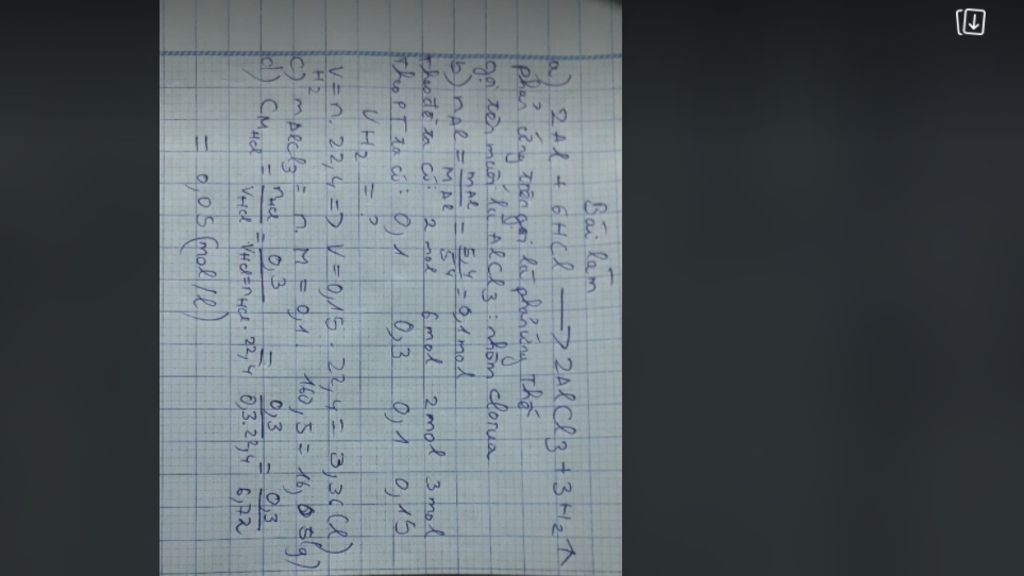 Bài làm
a) 2Al + 6HCl ⟶ 2AlCl3 + 3H2↑
phản ứng trên gọi là phản ứng thế
gọi tên muối là AlCl3: nhôm clorua
b) nAl = mAl/MAl = 5,4/54 = 0,1 mol
theo đề ta có: 2 mol 6 mol 2 mol 3 mol
Theo PT ta có: 0,1 0,3 0,1 0,15
VH2 = ?
VH2 = n. 22,4 => V = 0,15 . 22,4 = 3,36 (l)
c) mAlCl3 = n. M = 0,1 . 160,5 = 16,05 (g)
d) CMHCl = nHCl/VHCl = 0,3/VHCl=nHCl.22,4 = 0,3/0,3.22,4 = 0,3/6,72
= 0,05 (mol/l)